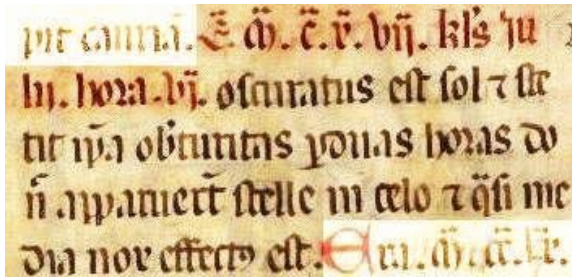 pit cauriā. E. M̄. C̄. X̄. vij. kl's Ju
lij. hora. vj. oscuratus est sol ⁊ ste
tit ip̄a obscuritas p duas horas do
n̄ apparuert̄ stelle in celo ⁊ q̄si me
dia nox effectꝰ est. Era. M̄. cc̄.